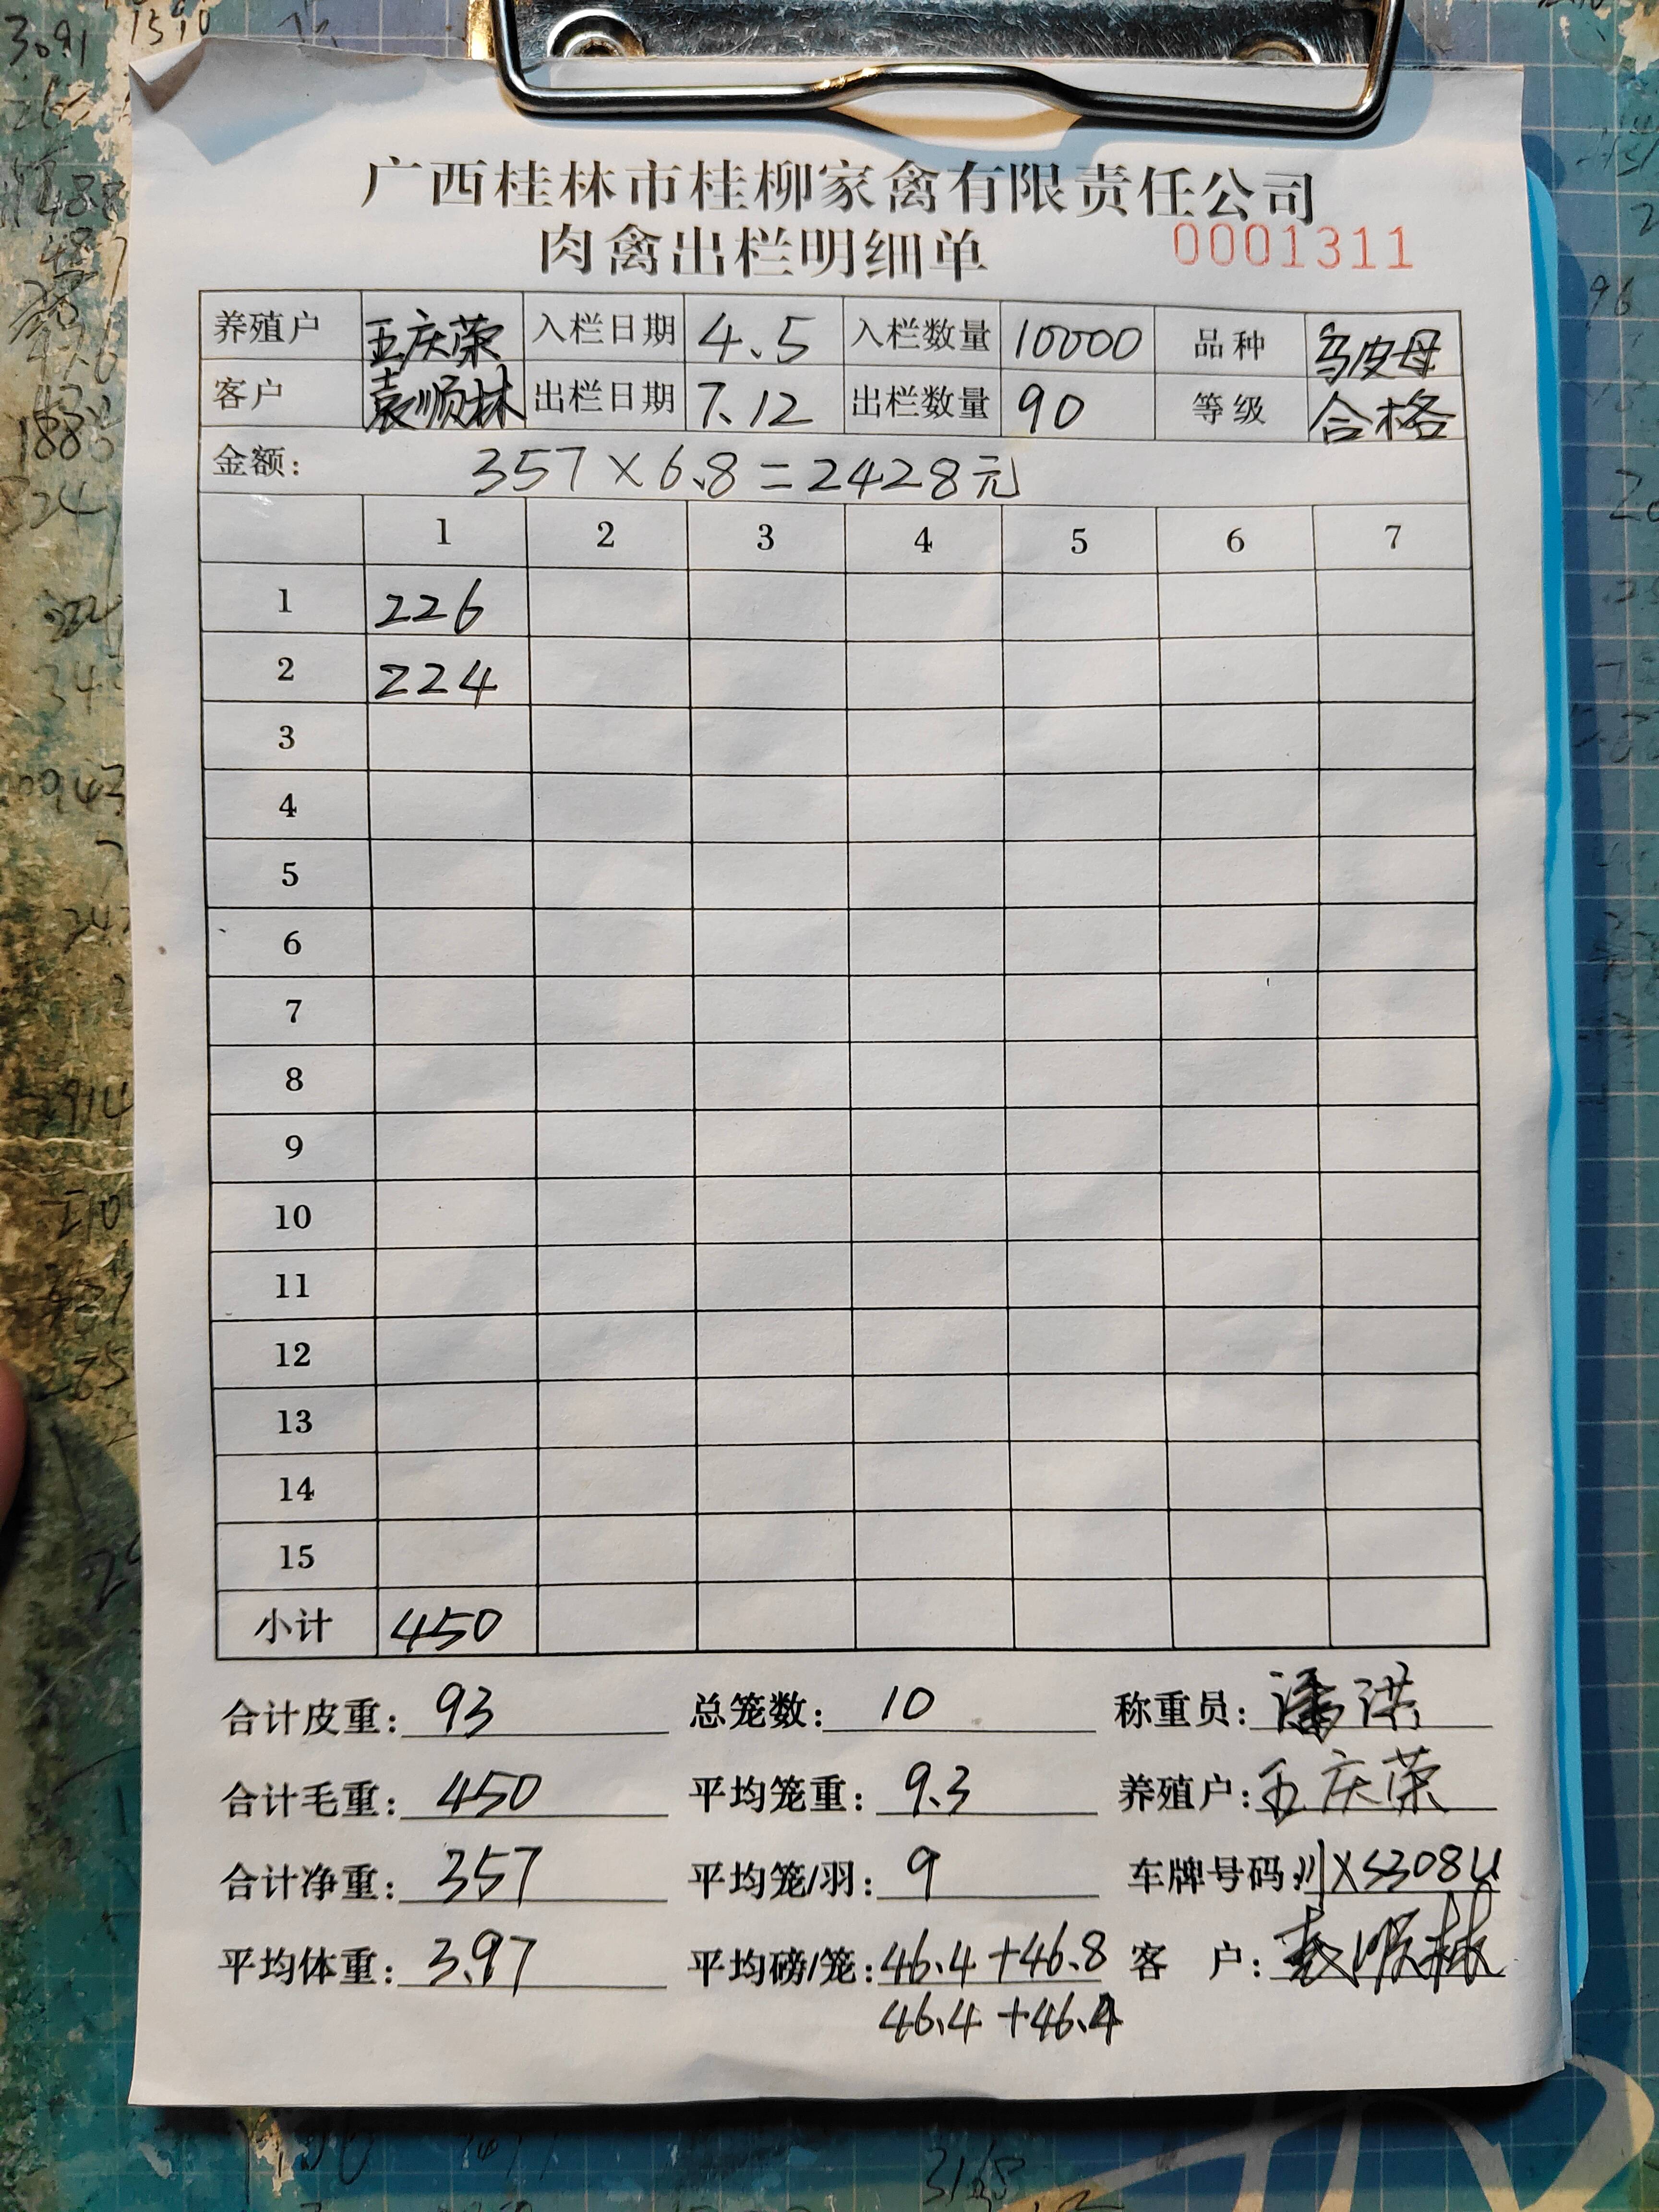 广西桂林市桂柳家禽有限责任公司
肉禽出栏明细单 0001311
养殖户 王庆荣 入栏日期 4.5 入栏数量 10000 品种 乌皮母
客户 袁顺林 出栏日期 7.12 出栏数量 90 等级 合格
金额: 357×6.8=2428元
1 2 3 4 5 6 7
1 226
2 224
3
4
5
6
7
8
9
10
11
12
13
14
15
小计 450
合计皮重: 93 总笼数: 10 称重员: 潘洪
合计毛重: 450 平均笼重: 9.3 养殖户: 王庆荣
合计净重: 357 平均笼/羽: 9 车牌号码: 川XS308U
平均体重: 3.97 平均磅/笼: 46.4+46.8 客户: 袁顺林
46.4+46.4